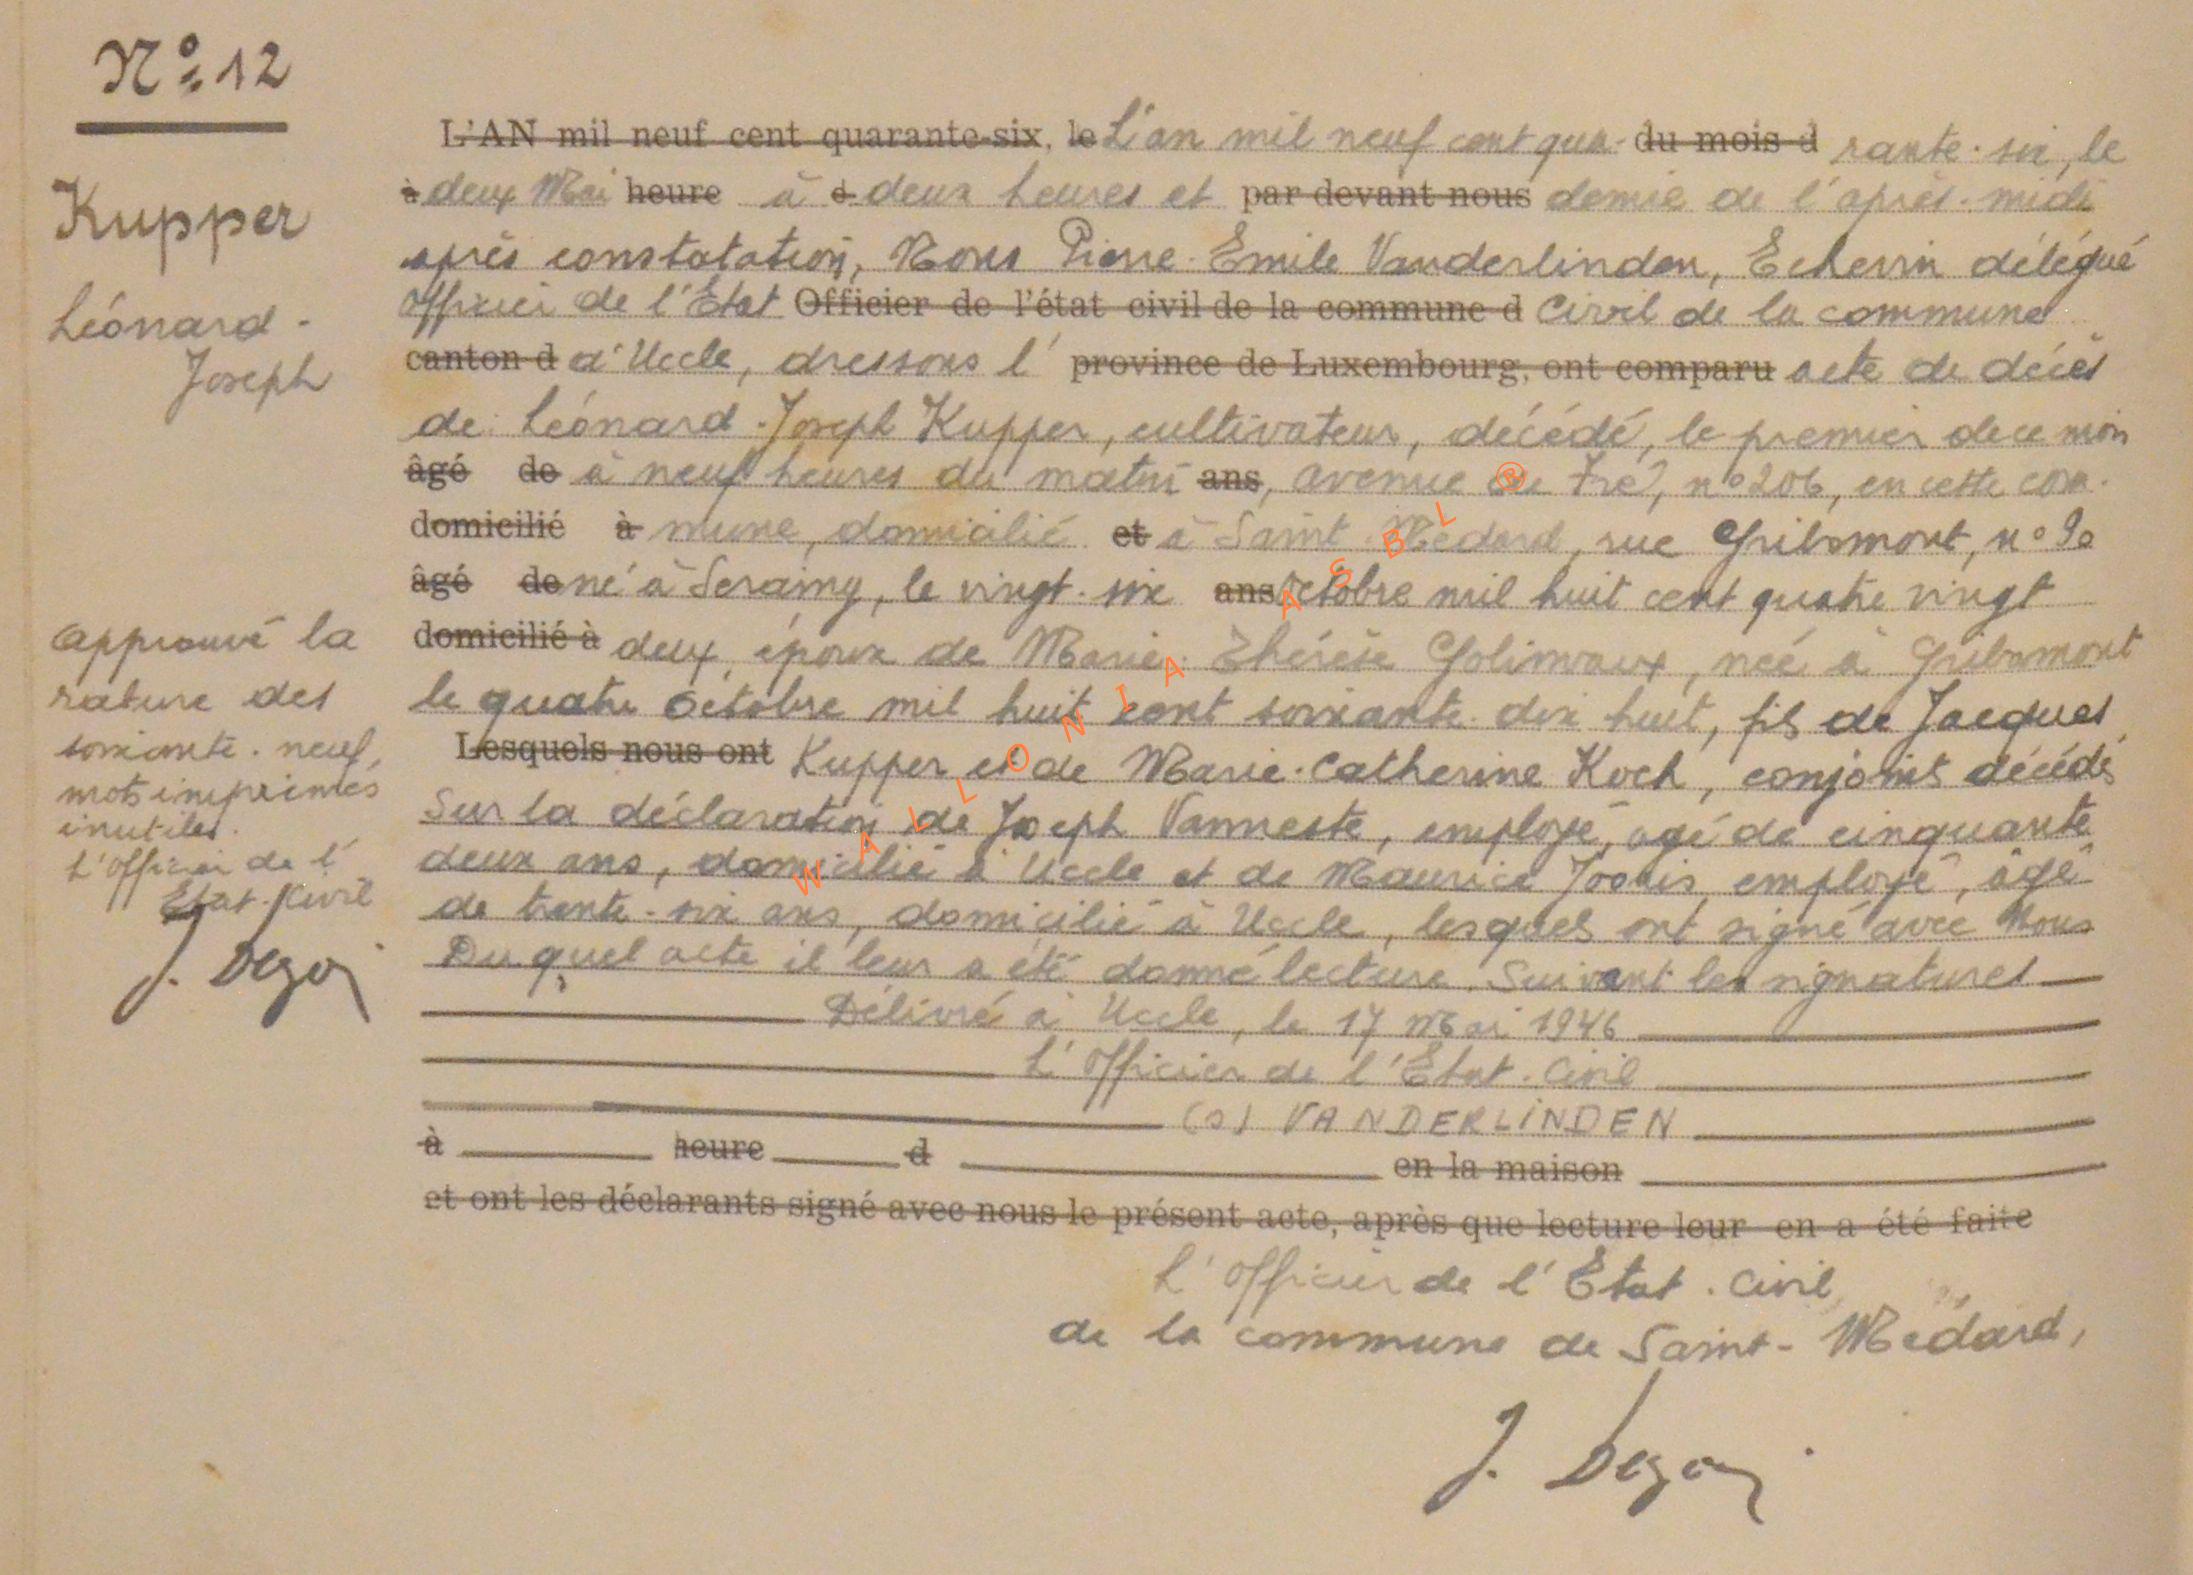 Nº 12
Kupper
Léonard-
Joseph
L'AN mil neuf cent quarante-six, le L'an mil neuf cent qua- du mois d rante-six, le
à deux Mai heure à d deux heures et par devant nous demie de l'après-midi
après constatation, Nous Pierre-Emile Vanderlinden, Echevin délégué
Officier de l'Etat Officier de l'état civil de la commune d Civil de la commune
canton d d'Uccle, dressons l' province de Luxembourg, ont comparu acte de décès
de Léonard-Joseph Kupper, cultivateur, décédé, le premier de ce mois
âgé de à neuf heures du matin ans, avenue de Fré, nº 206, en cette com-
domicilié à mune, domicilié et à Saint-Médard, rue Gribomont, nº 90
âgé de né à Seraing, le vingt-six ans octobre mil huit cent quatre vingt
domicilié à deux, époux de Marie-Thérèse Golinvaux, née à Gribomont
le quatre Octobre mil huit cent soixante-dix huit, fils de Jacques
Lesquels nous ont Kupper et de Marie-Catherine Koch, conjoints décédés
Sur la déclaration de Joseph Vanneste, employé, agé de cinquante
deux ans, domicilié à Uccle et de Maurice Jooris, employé, âgé
de trente-six ans, domicilié à Uccle, lesquels ont signé avec Nous
Du quel acte il leur a été donné lecture. Suivent les signatures
Délivré à Uccle, le 17 Mai 1946
L'Officier de l'Etat-Civil
(s) VANDERLINDEN
à heure d en la maison
et ont les déclarants signé avec nous le présent acte, après que lecture leur en a été faite
L'Officier de l'Etat-Civil
de la commune de Saint-Médard,
J.
approuvé la
rature des
soixante-neuf,
mots imprimés
inutiles.
L'Officier de l'
Etat-Civil
J.
WALLONIA ASBL ®